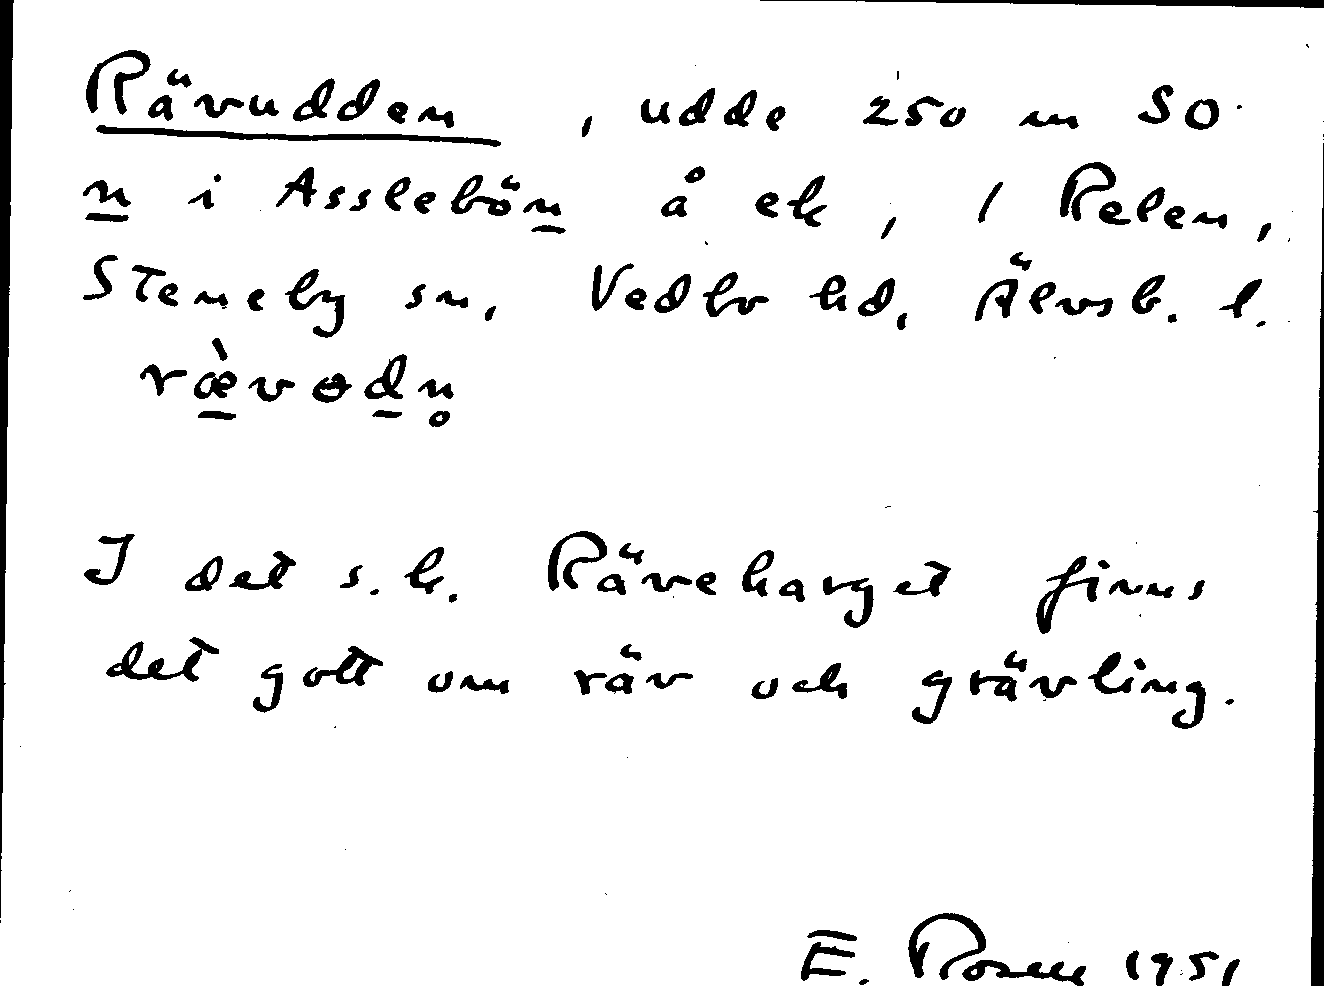 Rävudden, udde 250 m SO
n i Asslebön å ek, i Relen,
Steneby sn, Vedbo hd, Älvsb. l.
ræ̀vɵdn̥
I det s.k. Räveharget finns
det gott om räv och grävling.
E. Rosell 1951